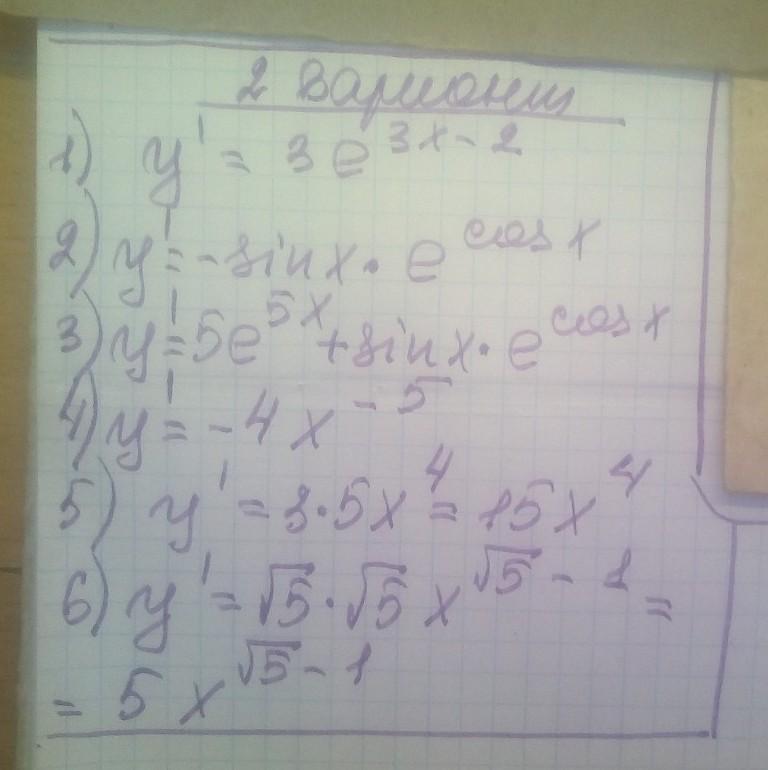 2 Вариант
1) y' = 3e^{3x-2}
2) y' = -sinx · e^{cosx}
3) y' = 5e^{5x} + sinx · e^{cosx}
4) y' = -4x^{-5}
5) y' = 3·5x^4 = 15x^4
6) y' = √5·√5 x^{√5-1} =
= 5x^{√5-1}